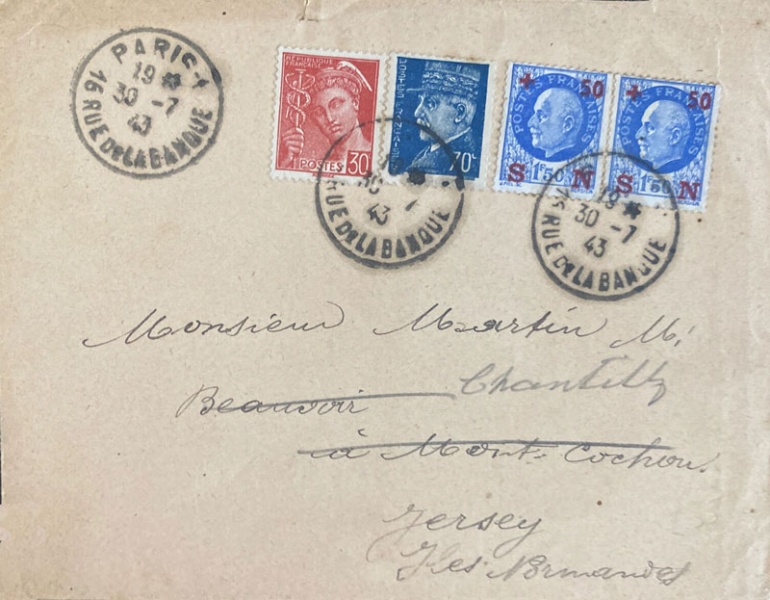 PARIS-1
19 *
30 -7
43
16 RUE DE LA BANQUE
RÉPUBLIQUE FRANÇAISE
POSTES 30
70c
+ 50
POSTES FRANÇAISES
1F50
S N
+ 50
POSTES FRANÇAISES
1F50
S N
30 -7
43
RUE DE LA BANQUE
19 *
30 -7
43
16 RUE DE LA BANQUE
Monsieur Martin M.
Beauvoir Chantilly
à Mont Cochon.
Jersey
Iles Normandes